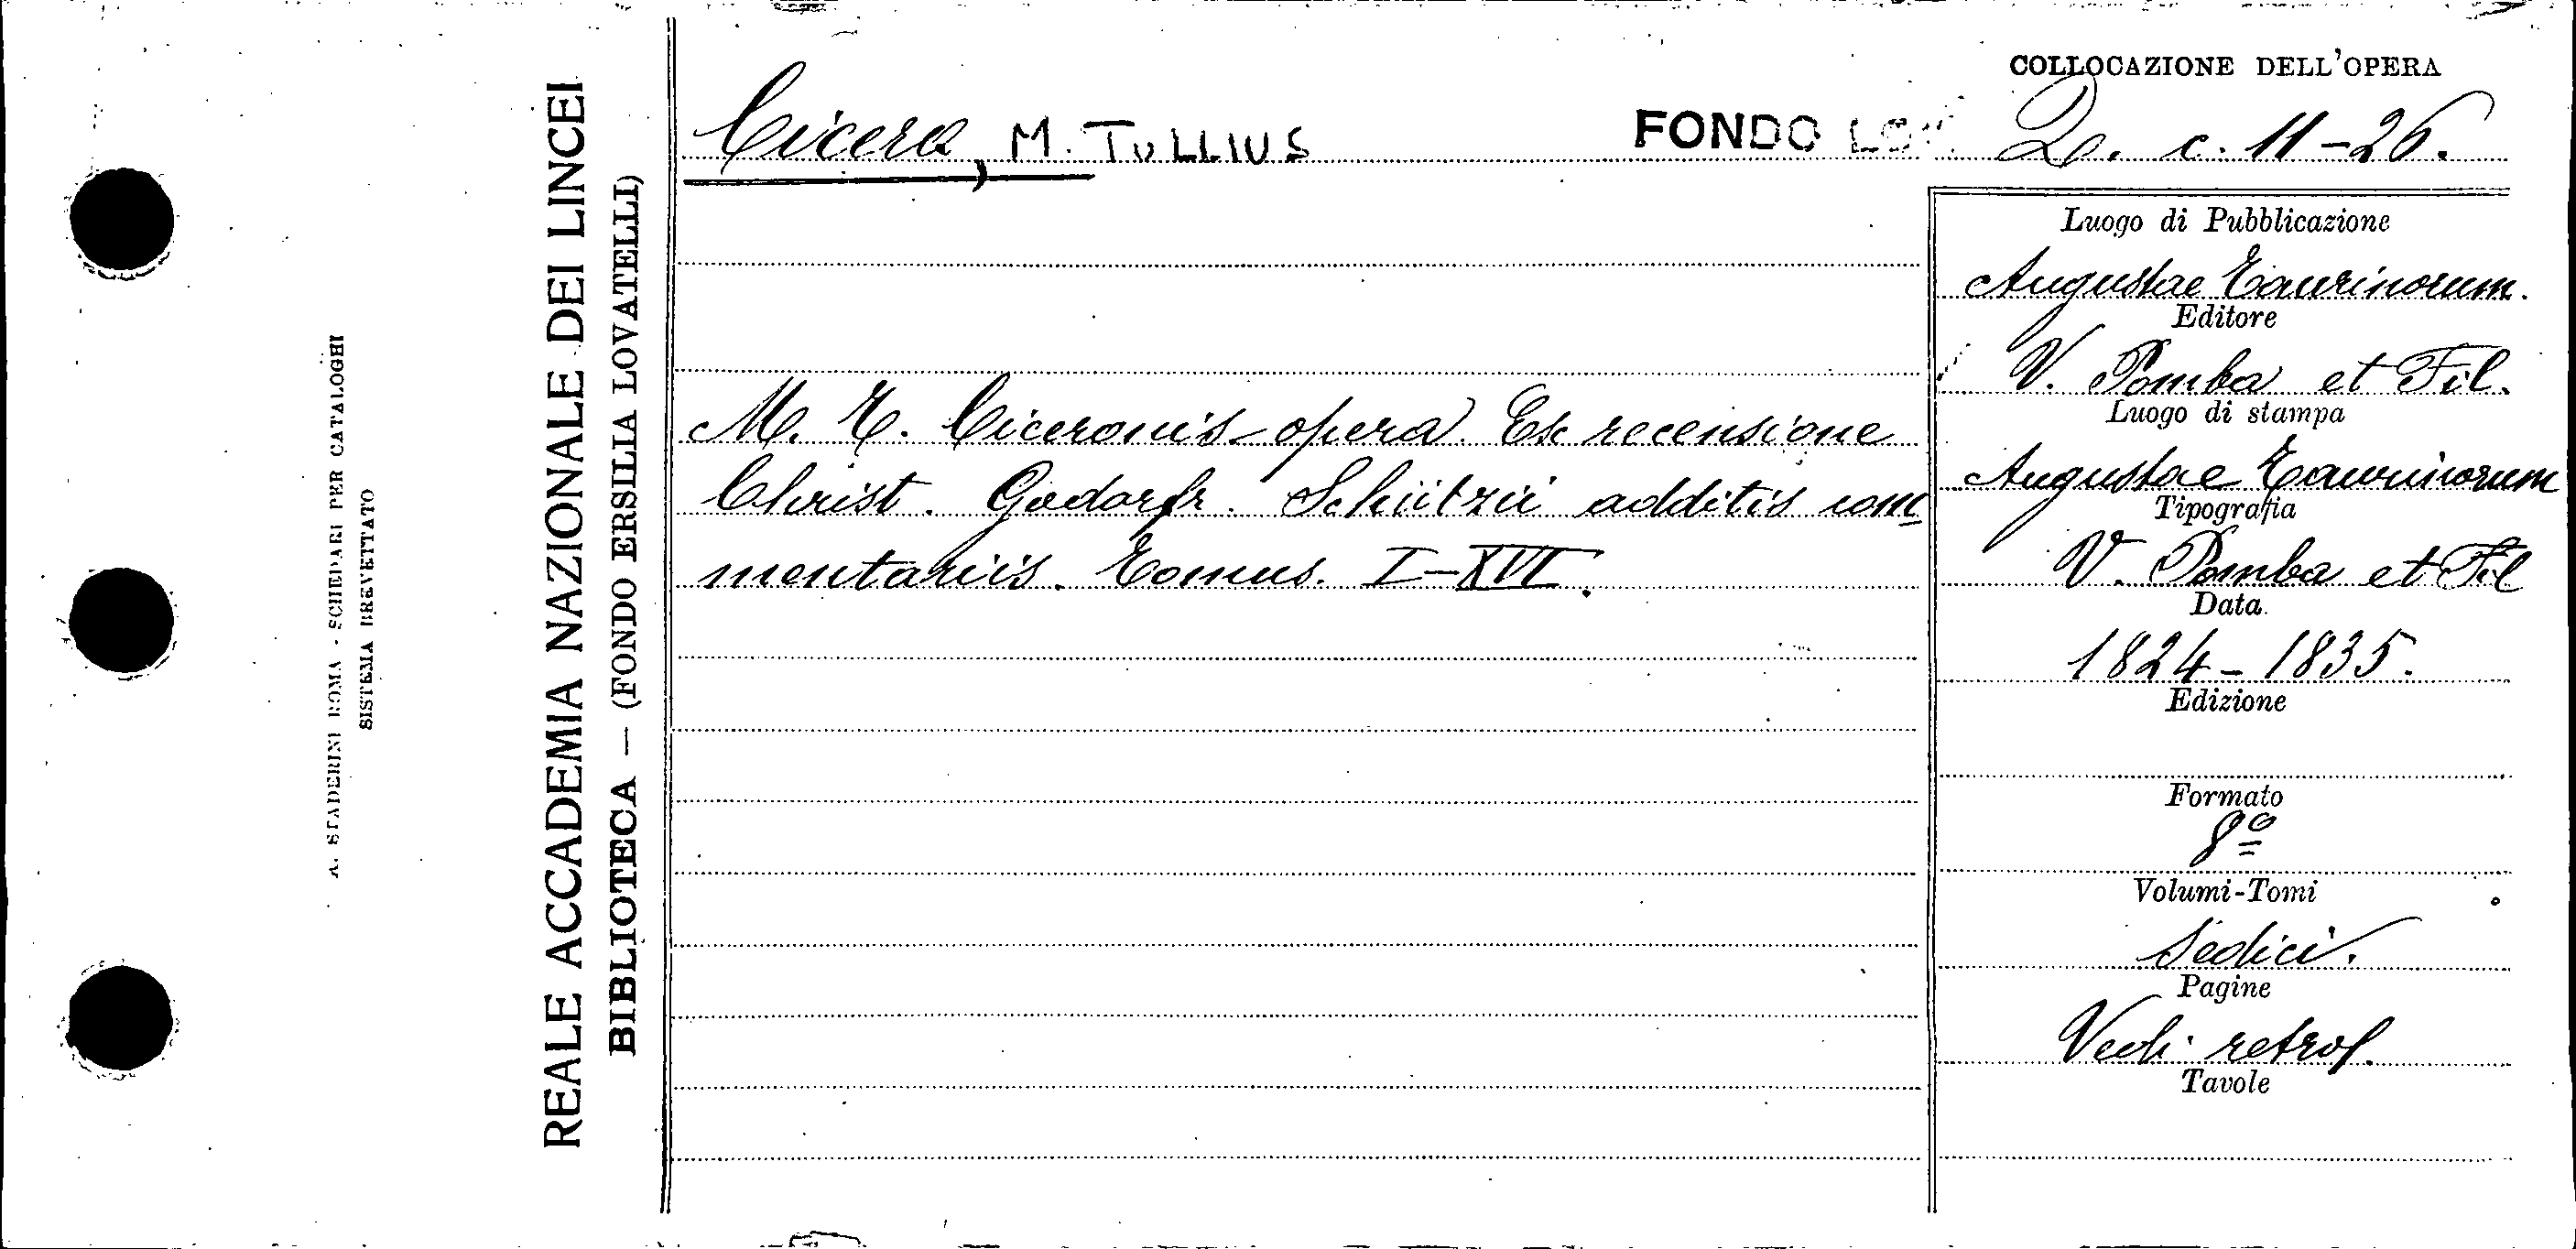 A. STADERINI ROMA - SCHEDARI PER CATALOGHI
SISTEMA BREVETTATO
REALE ACCADEMIA NAZIONALE DEI LINCEI
BIBLIOTECA — (FONDO ERSILIA LOVATELLI)
Cicero, M. TULLIUS
FONDO
M. T. Ciceronis opera. Ex recensione
Christ. Godorfr. Schützii additis com
mentariis. Tomus. I-XVI.
COLLOCAZIONE DELL'OPERA
2. c. 11-26.
Luogo di Pubblicazione
Augustae Taurinorum.
Editore
V. Pomba et Fil.
Luogo di stampa
Augustae Taurinorum
Tipografia
V. Pomba et Fil
Data
1824-1835.
Edizione
Formato
8º
Volumi-Tomi
Sedici.
Pagine
Vedi retro.
Tavole